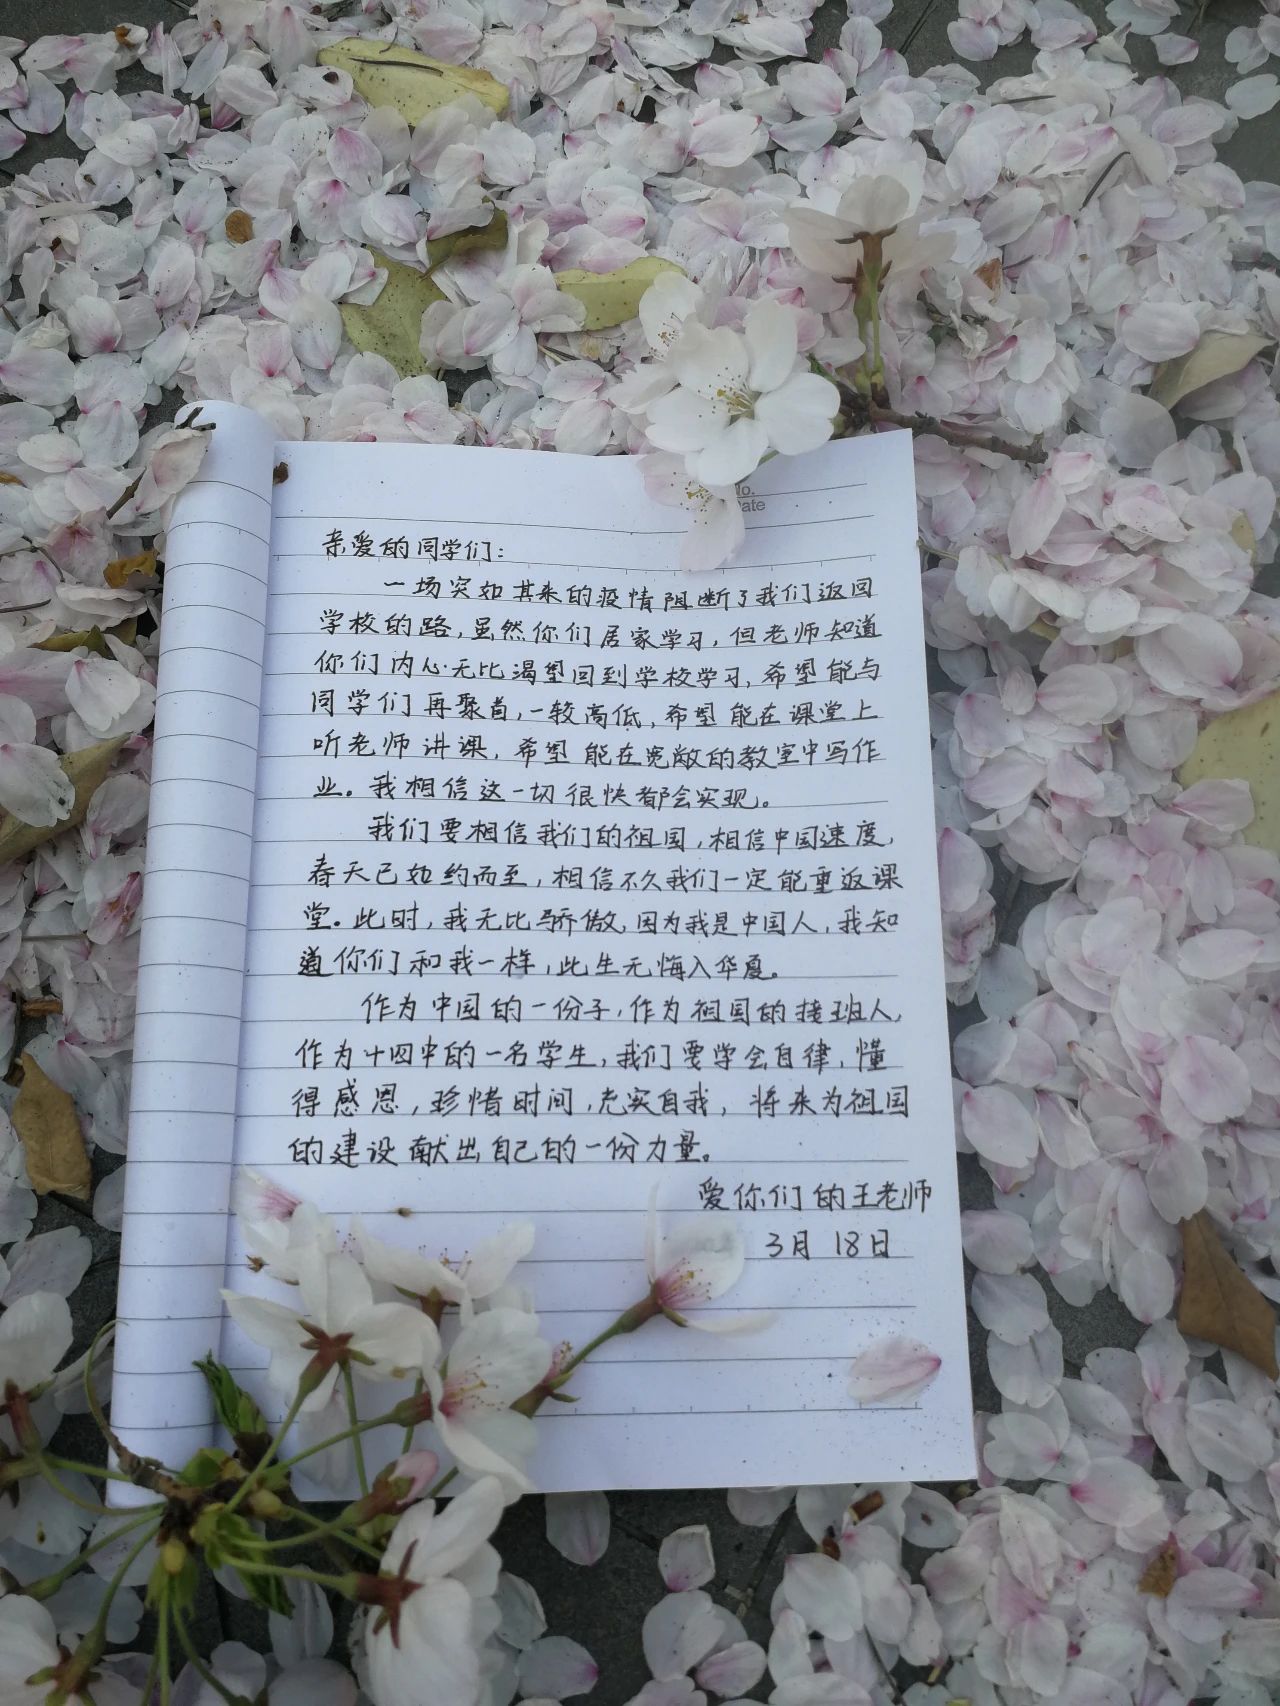 No.
Date
亲爱的同学们：
一场突如其来的疫情阻断了我们返回
学校的路，虽然你们居家学习，但老师知道
你们内心无比渴望回到学校学习，希望能与
同学们再聚首，一较高低，希望能在课堂上
听老师讲课，希望能在宽敞的教室中写作
业。我相信这一切很快都会实现。
我们要相信我们的祖国，相信中国速度，
春天已如约而至，相信不久我们一定能重返课
堂。此时，我无比骄傲，因为我是中国人，我知
道你们和我一样，此生无悔入华夏。
作为中国的一份子，作为祖国的接班人，
作为十四中的一名学生，我们要学会自律，懂
得感恩，珍惜时间，充实自我，将来为祖国
的建设献出自己的一份力量。
爱你们的王老师
3月18日